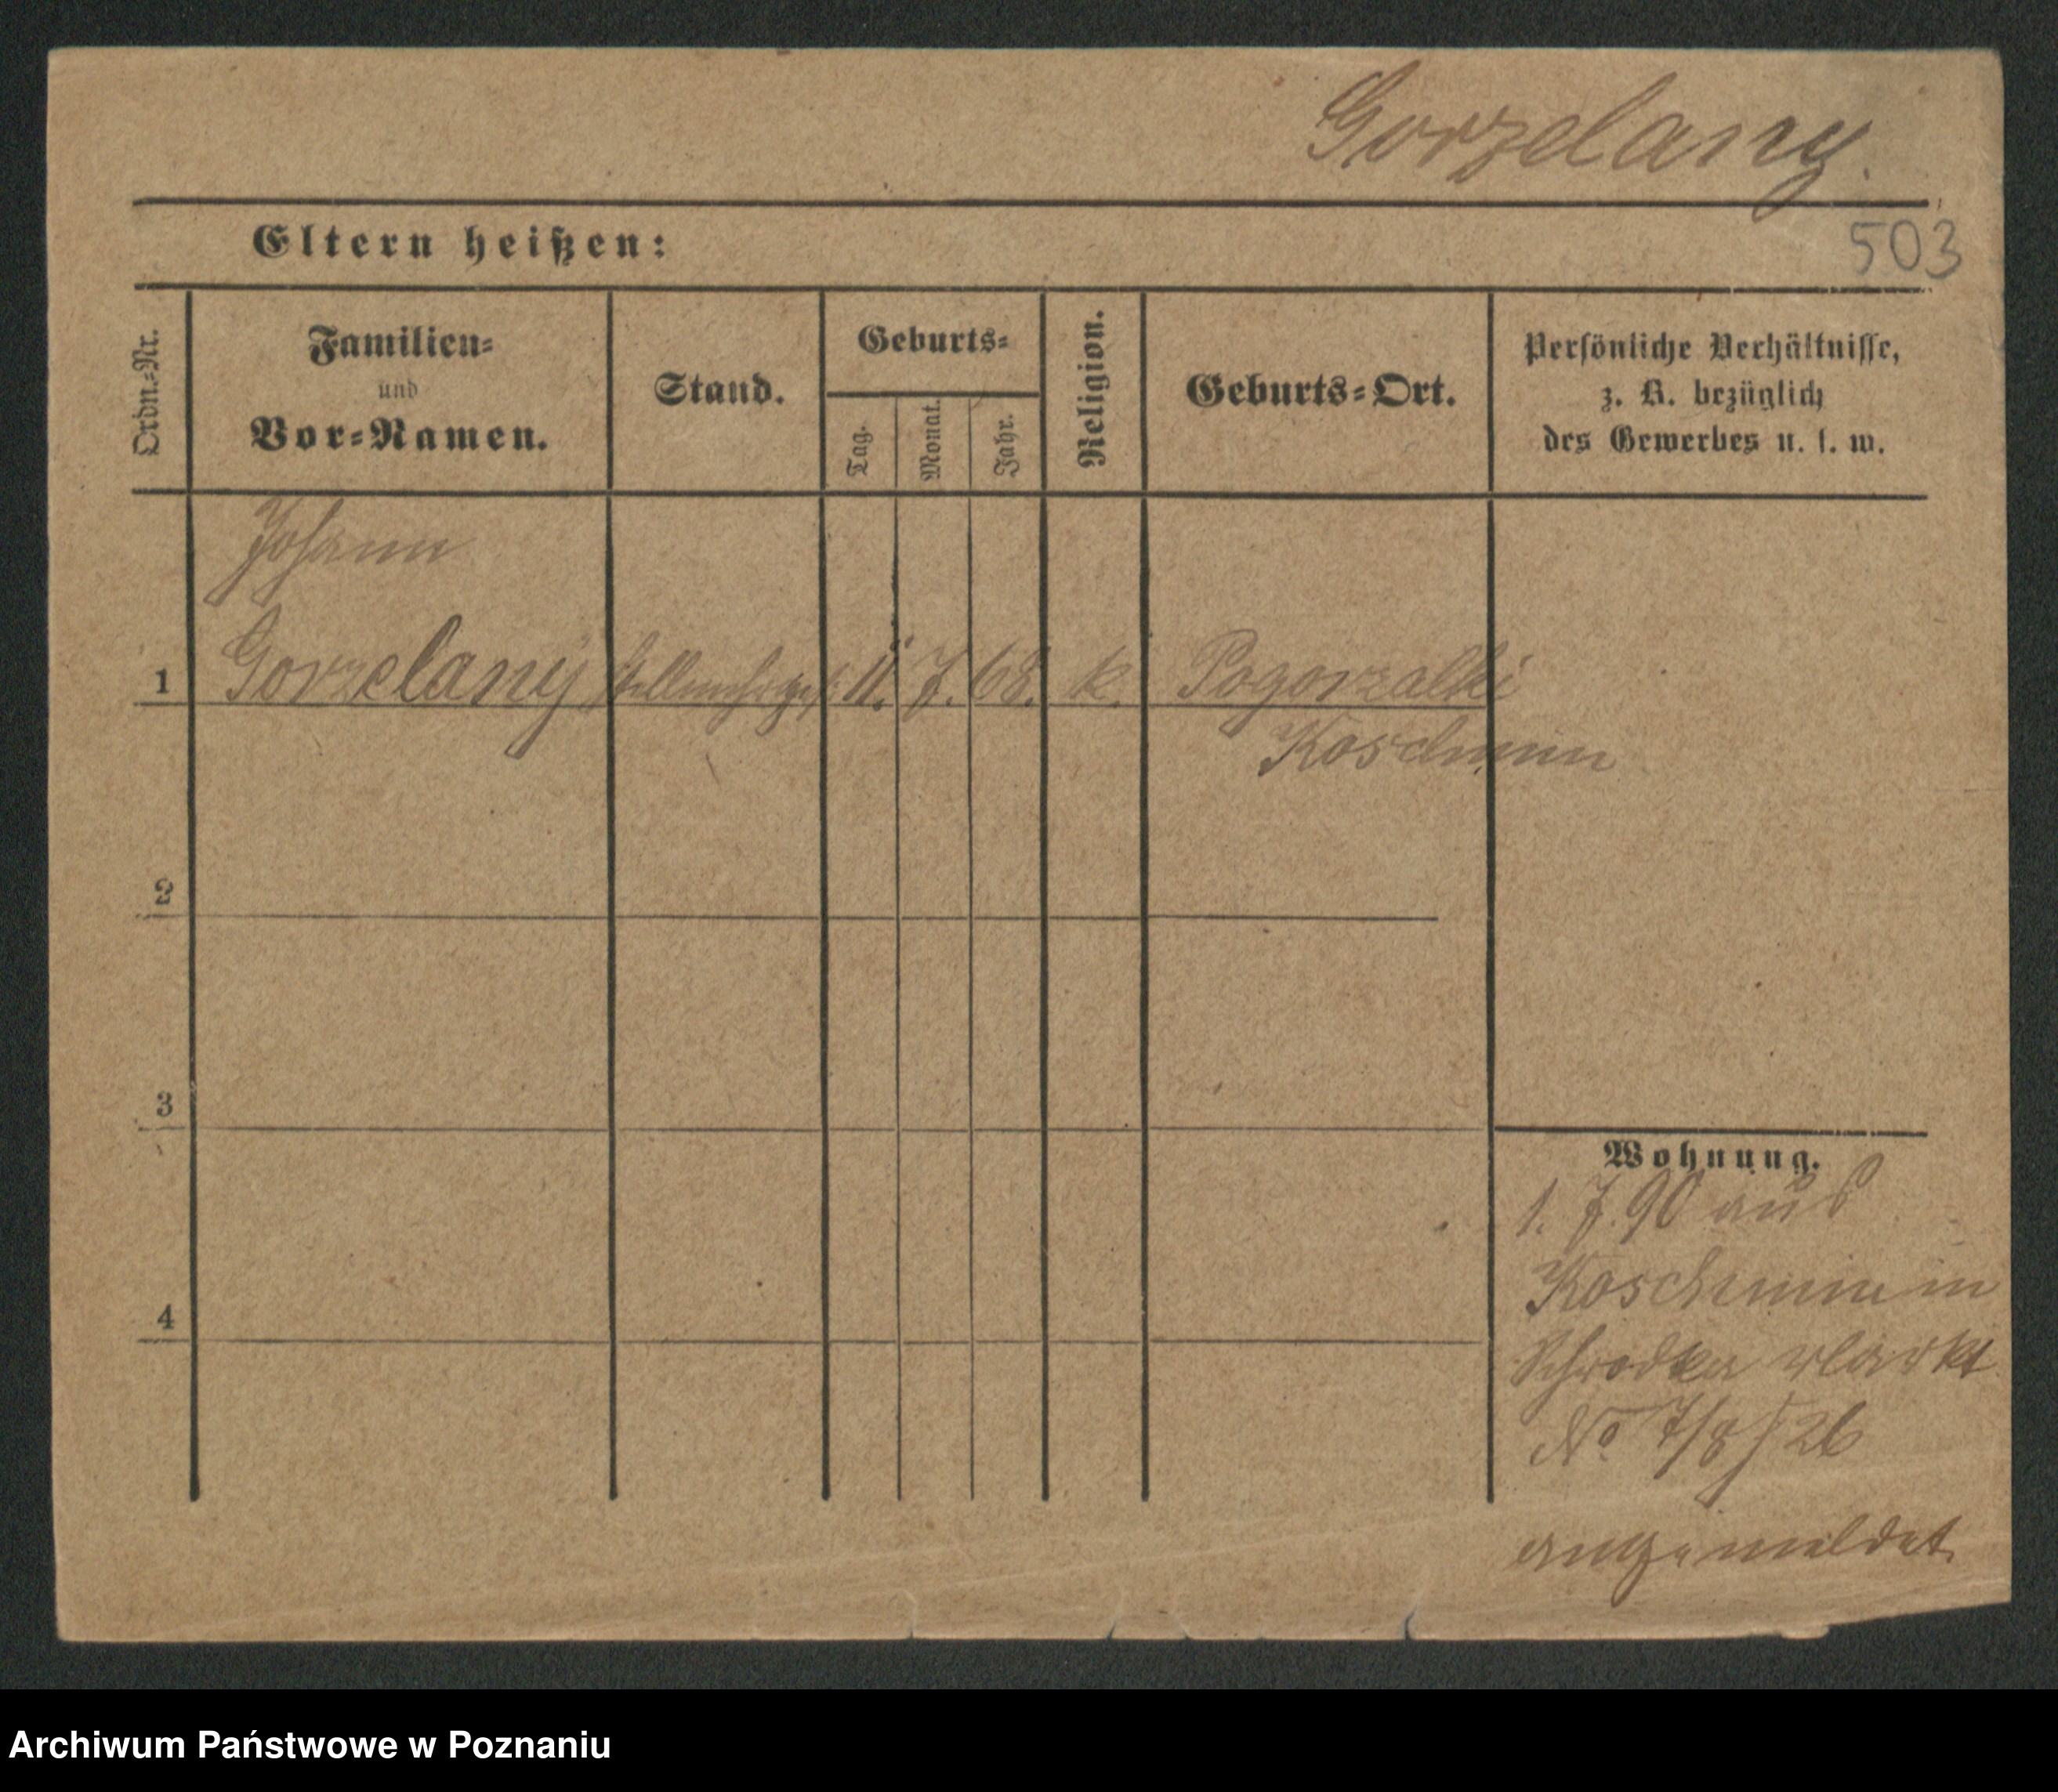 Gorzelany.
Eltern heißen:
503
Ordn.-Nr.
Familien-
und
Vor-Namen.
Stand.
Geburts-
Tag.
Monat.
Jahr.
Religion.
Geburts-Ort.
Persönliche Verhältnisse,
z. B. bezüglich
des Gewerbes u. s. w.
Johann
1 Gorzelany 11. 7. 68. k. Pogorzalki
Koschmin
2
3
4
Wohnung.
1. 7. 90 aus
Koschmin in
Schrodka Markt
No 7/8 / 26
angemeldet
Archiwum Państwowe w Poznaniu